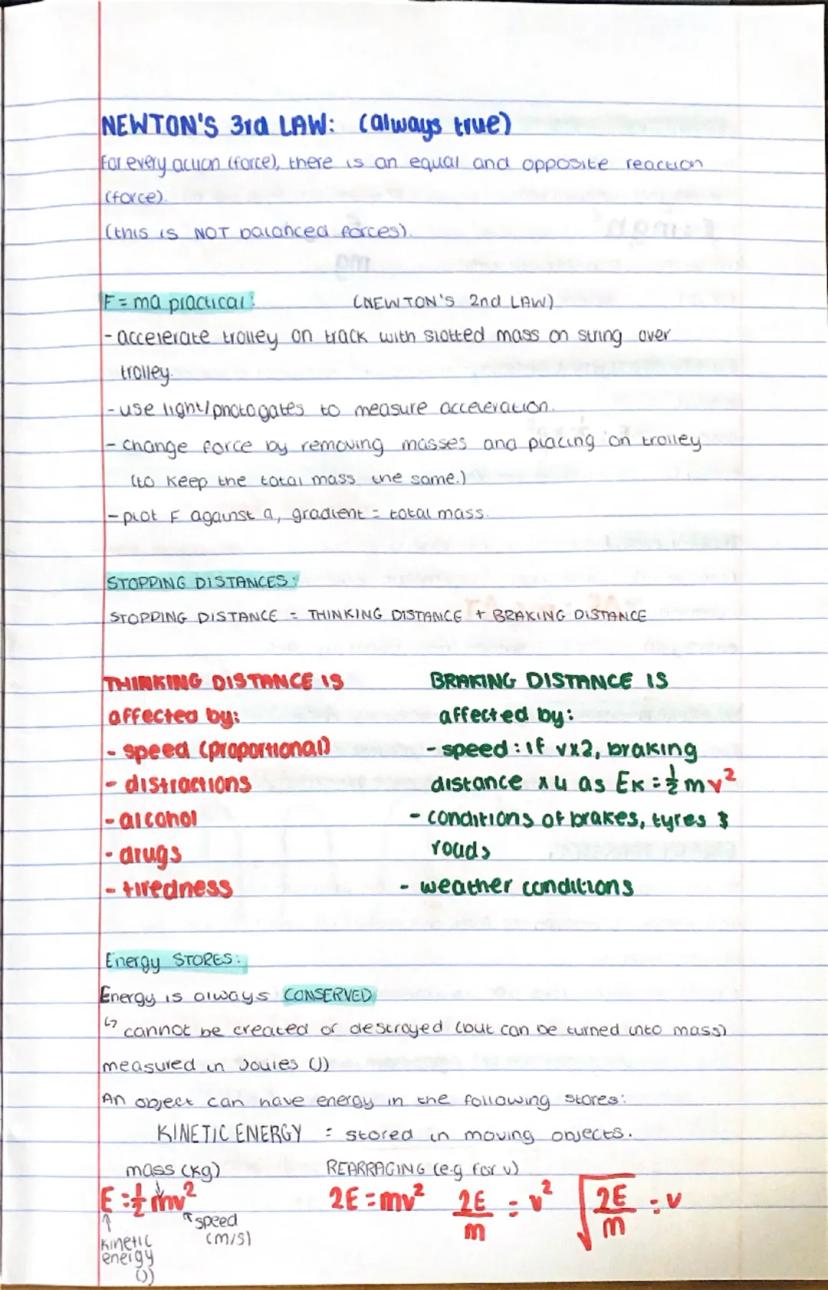 NEWTON'S 3rd LAW: (always true)
For every action (force), there is an equal and opposite reaction
(force).
(this is NOT balanced forces).
F = ma practical: (NEWTON'S 2nd LAW)
- accelerate trolley on track with slotted mass on string over
trolley.
- use light/photogates to measure acceleration.
- change force by removing masses and placing on trolley
(to keep the total mass the same.)
- plot F against a, gradient = total mass.
STOPPING DISTANCES:
STOPPING DISTANCE = THINKING DISTANCE + BRAKING DISTANCE
THINKING DISTANCE IS
affected by:
- speed (proportional)
- distractions
- alcohol
- drugs
- tiredness
BRAKING DISTANCE IS
affected by:
- speed: if vx2, braking
distance x4 as Ek = ½mv²
- conditions of brakes, tyres &
roads
- weather conditions
Energy STORES:
Energy is always CONSERVED
↳ cannot be created or destroyed (but can be turned into mass)
measured in Joules (J)
An object can have energy in the following stores:
KINETIC ENERGY = stored in moving objects.
mass (kg) REARRAGING (e.g for v)
E = ½mv² 2E = mv² 2E/m = v² √(2E/m) = v
↑ kinetic energy (J)
speed (m/s)